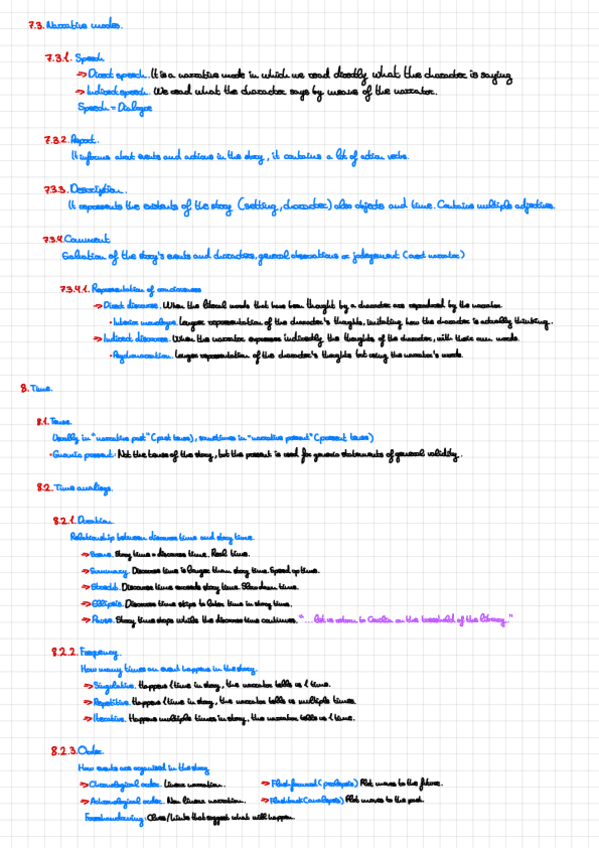 7.3. Narrative modes.
7.3.1. Speech
→ Direct speech. It is a narrative mode in which we read directly what the character is saying
→ Indirect speech. We read what the character says by means of the narrator.
Speech = Dialogue
7.3.2. Report.
It informs about events and actions in the story, it contains a lot of action verbs.
7.3.3. Description.
It represents the existents of the story (setting, character) also objects and time. Contains multiple adjectives.
7.3.4. Comment
of the story's events and characters, general observations or judgement (overt narrator)
7.3.4.1. Representation of conciousness
→ Direct discourse. When the literal words that have been thought by a character are reproduced by the narrator.
· Interior monologue. Larger representation of the character's thoughts, imitating how the character is actually thinking.
→ Indirect discourse. When the narrator expresses indirectly the thoughts of the character, with their own words.
· Psychonarration. Larger representation of the character's thoughts but using the narrator's words.
8. Time.
8.1. Tense.
Usually in "narrative past" (past tense), sometimes in "narrative present" (present tense)
· Gnomic present. Not the tense of the story, but the present is used for generic statements of general validity.
8.2. Time analisys.
8.2.1. Duration
Relationship between discourse time and story time.
→ Scene. Story time = discourse time. Real time.
→ Summary. Discourse time is larger than story time. Speed up time.
→ Stretch. Discourse time exceeds story time. Slow down time.
→ Ellipsis. Discourse time skips to later time in story time.
→ Pause. Story time stops while the discourse time continues. "...let us return to on the threshold of the library."
8.2.2. Frequency.
How many times an event happens in the story.
→ Singulative. Happens 1 time in story, the narrator tells us 1 time.
→ Repetitive. Happens 1 time in story, the narrator tells us multiple times.
→ Iterative. Happens multiple times in story, the narrator tells us 1 time.
8.2.3. Order.
How events are organised in the story
→ Chronological order. Linear narration. → Flashforward (prolepsis) Plot moves to the future.
→ Achronological order. Non linear narration. → Flashback (analepsis) Plot moves to the past.
Foreshadowing: Clues/hints that suggest what will happen.